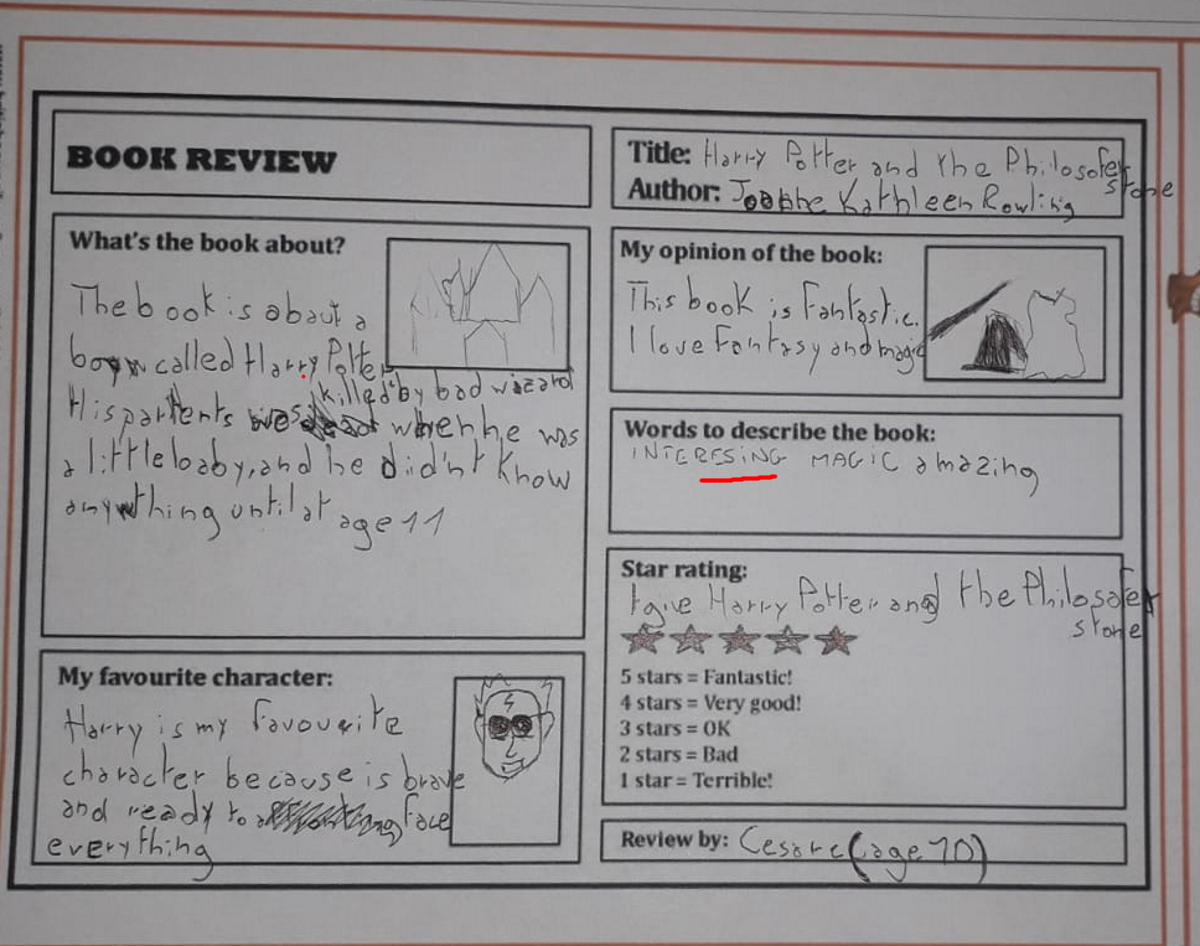 BOOK REVIEW
Title: Harry Potter and the Philosofer
stone
Author: Joanne Kathleen Rowling
What's the book about?
The book is about a
boy called Harry Potter
killed by bad wizard
His partents when he was
a little baby, and he didn't know
anything until at age 11
My opinion of the book:
This book is Fantastic.
I love Fantasy and magic
Words to describe the book:
INTERESING MAGIC amazing
Star rating:
I give Harry Potter and the Philosofer
stone
5 stars = Fantastic!
4 stars = Very good!
3 stars = OK
2 stars = Bad
1 star = Terrible!
My favourite character:
Harry is my favourite
character because is brave
and ready to face
everything
Review by: Cesare (age 10)